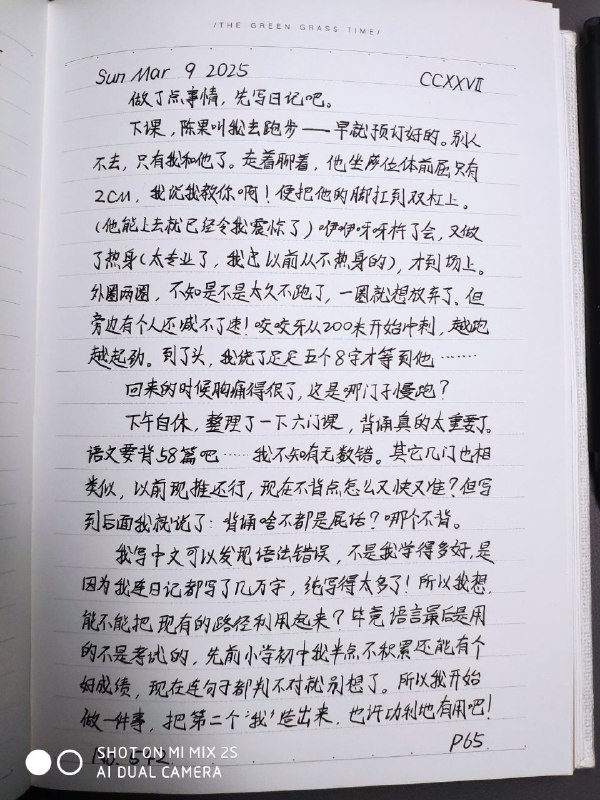 /THE GREEN GRASS TIME/
Sun Mar 9 2025 CCXXVII
做了点事情，先写日记吧。
下课，陈果叫我去跑步——早就预订好的。别人
不去，只有我和他了。走着聊着，他坐位体前屈只有
2CM，我说我教你啊！便把他的脚扛到双杠上。
（他能上去就已经令我震惊了）咿咿呀呀杵了会，又做
了热身（太专业了，我以前从不热身的），才到场上。
外圈两圈，不知是不是太久不跑了，一圈就想放弃了。但
旁边有个人还减不了速！咬咬牙从200米开始冲刺，越跑
越起劲。到了头，我绕了足足五个8字才等到他……
回来的时候胸痛得很了，这是哪门子慢跑？
下午自休，整理了一下六门课，背诵真的太重要了。
语文要背58篇吧……我不知有无数错。其它几门也相
类似，以前现推还行，现在不背点怎么又快又准？但写
到后面我就说了：背诵啥不都是屁话？哪个不背。
我写中文可以发现语法错误，不是我学得多好，是
因为我连日记都写了几万字，纯写得太多了！所以我想，
能不能把现有的路径利用起来？毕竟语言最后是用
的不是考试的，先前小学初中我半点不积累还能有个
好成绩，现在连句子都判不对就别想了。所以我开始
做一件事，把第二个“我”造出来，也许功利地有用吧！
P65
SHOT ON MI MIX 2S
AI DUAL CAMERA